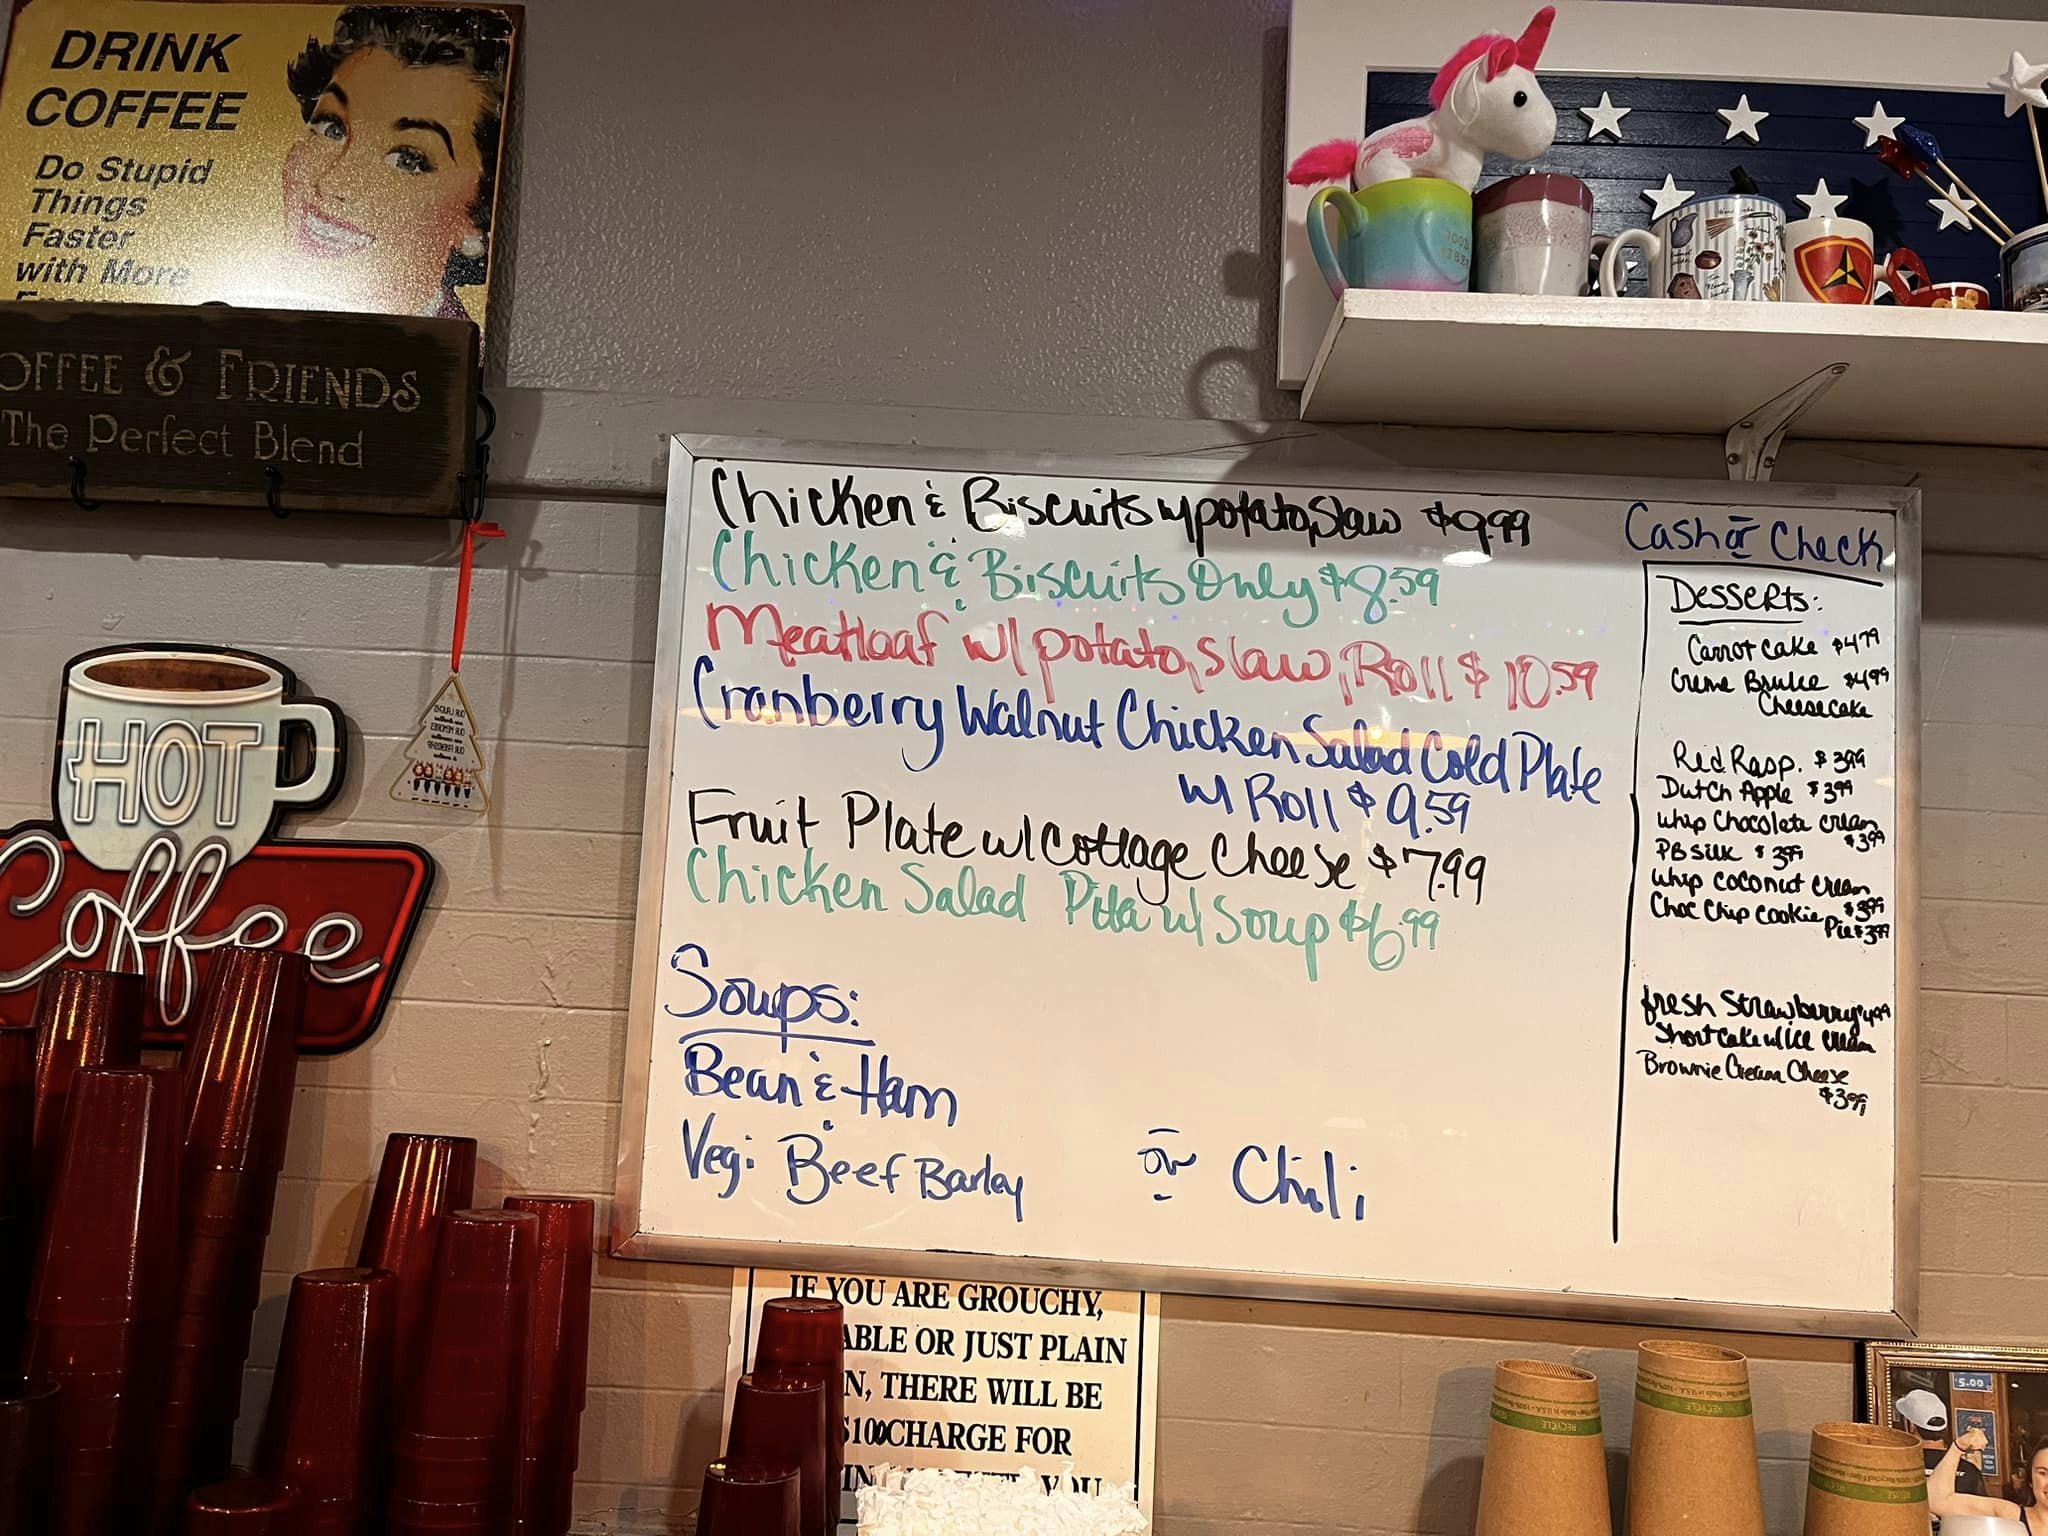 DRINK
COFFEE
Do Stupid
Things
Faster
with More
OFFEE & FRIENDS
The Perfect Blend
HOT
Coffee
Chicken & Biscuits w/potato,slaw $9.99
Chicken & Biscuits Only $8.59
Meatloaf w/ potato,slaw, Roll $10.59
Cranberry Walnut Chicken Salad Cold Plate
w/ Roll $9.59
Fruit Plate w/ Cottage Cheese $7.99
Chicken Salad Pita w/ Soup $6.99
Soups:
Bean & Ham
Veg: Beef Barley or Chili
Cash or Check
Desserts:
Carrot Cake $4.79
Creme Brulee $4.99
Cheesecake
Red Rasp. $3.99
Dutch Apple $3.99
Whip Chocolate Cream
$3.99
PB Silk $3.99
Whip Coconut Cream
$3.99
Choc Chip Cookie
Pie $3.99
fresh Strawberry $4.99
Shortcake w/ Ice Cream
Brownie Cream Cheese
$3.99
IF YOU ARE GROUCHY,
ABLE OR JUST PLAIN
N, THERE WILL BE
$10 CHARGE FOR
YOU
RECYCLE
RECYCLE
5.00